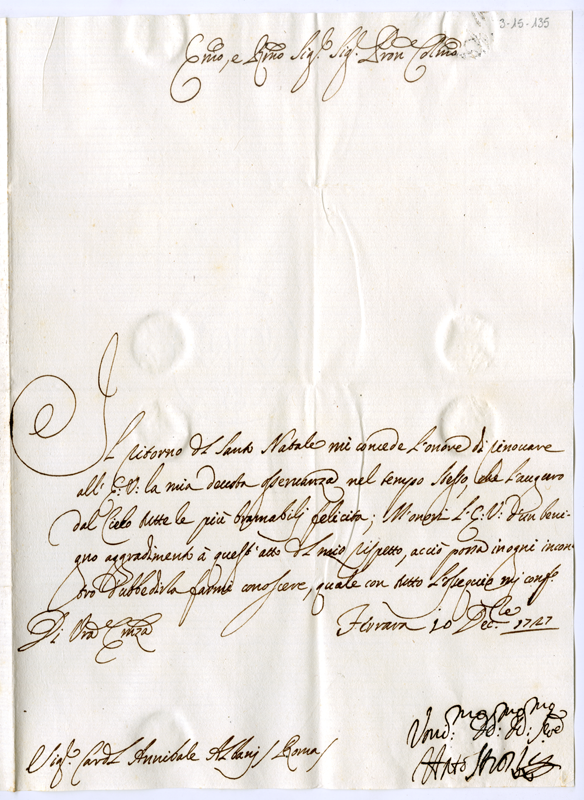 3-15-135
Emo, e Rmo Sig.r Sig.r Pron Colmo
Il ritorno del Santo Natale mi concede l'onore di rinouare
all' E: V: la mia deuota osseruanza nel tempo stesso, che l'auguro
dal Cielo tutte le più bramabili felicità; Honori l'E: V: d'un beni-
gno aggradimento à quest'atto del mio rispetto, acciò possa in ogni incon-
tro d'ubbedirla farmi conoscere, quale con tutto l'ossequio mi conf.o
Di Vra Emza
Ferrara 20 Dec.e 1727
Vmo: Do: Do: Sre
Sig.r Card.l Annibale Albani Roma